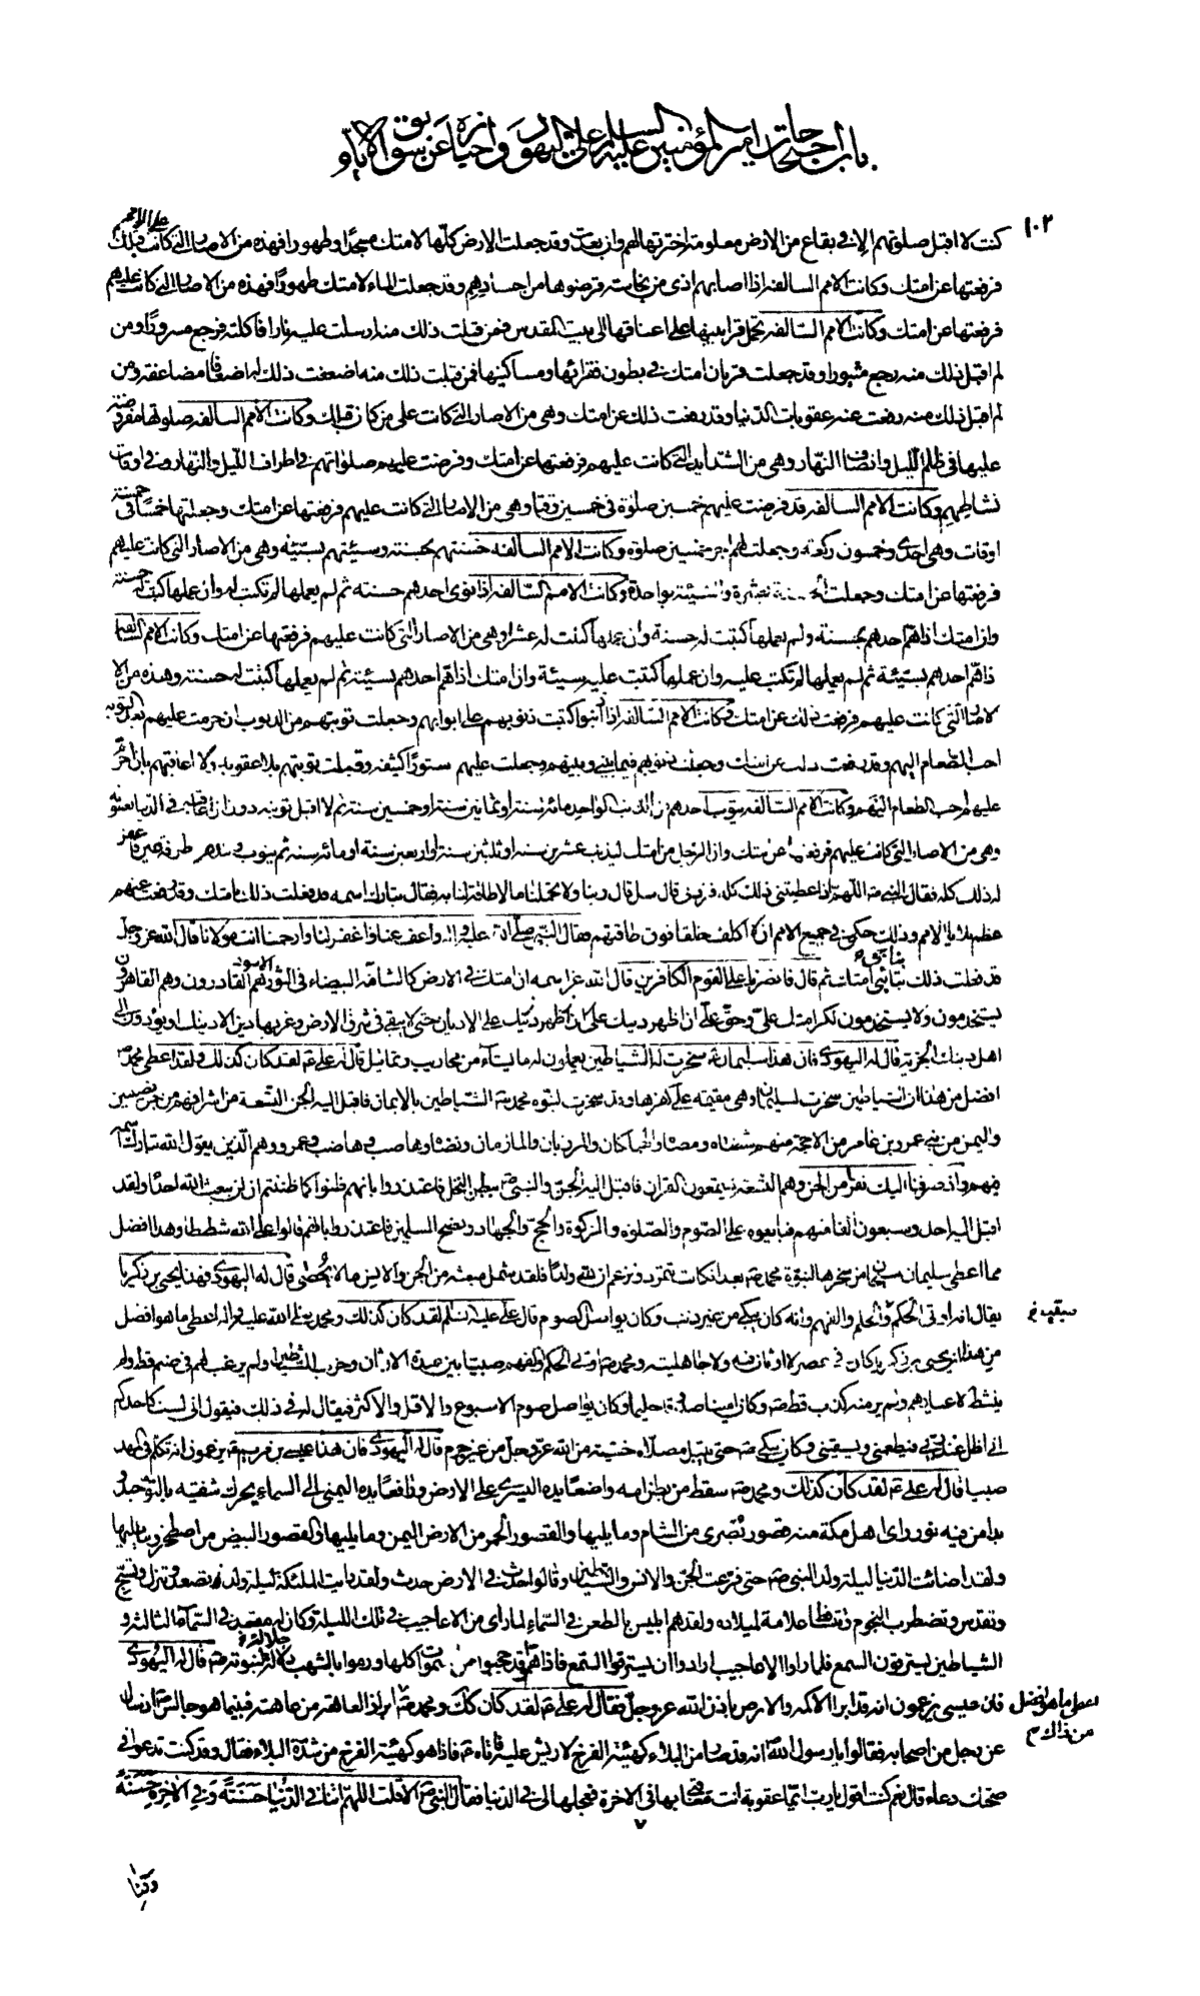 باب احتجاجات امير المؤمنين عليه السلام على اليهود واحباره عن سوالات
١٠٢
كنت لا اقبل صلوتهم الا في بقاع من الارض معلومة اخترتها لهم وان بعدت وقد جعلت الارض كلها لامتك مسجدا وطهورا فهذه من الاصار التي كانت على الامم قبلك
فرفعتها عن امتك وكانت الامم السالفة اذا اصابهم اذى من نجاسة قرضوها من اجسادهم وقد جعلت الماء لامتك طهورا فهذه من الاصار التي كانت عليهم
فرفعتها عن امتك وكانت الامم السالفة تحمل قرابينها على اعناقها الى بيت المقدس فمن قبلت ذلك منه ارسلت عليه نارا فاكلته فرجع مسرورا ومن
لم اقبل ذلك منه رجع مثبورا وقد جعلت قربان امتك في بطون فقرائها ومساكينها فمن قبلت ذلك منه اضعفت ذلك له اضعافا مضاعفة ومن
لم اقبل ذلك منه رفعت عنه عقوبات الدنيا وقد رفعت ذلك عن امتك وهي من الاصار التي كانت على من كان قبلك وكانت الامم السالفة صلوتها مفروضة
عليها في ظلم الليل وانصاف النهار وهي من الشدايد التي كانت عليهم فرفعتها عن امتك وفرضت عليهم صلواتهم في اطراف الليل والنهار وفي اوقات
نشاطهم وكانت الامم السالفة قد فرضت عليهم خمسين صلوة في خمسين وقتا وهي من الاصار التي كانت عليهم فرفعتها عن امتك وجعلتها خمسا في خمسة
اوقات وهي احدى وخمسون ركعة وجعلت لهم اجر خمسين صلوة وكانت الامم السالفة حسنتهم بحسنة وسيئتهم بسيئة وهي من الاصار التي كانت عليهم
فرفعتها عن امتك وجعلت الحسنة بعشرة والسيئة بواحدة وكانت الامم السالفة اذا نوى احدهم حسنة ثم لم يعملها لم تكتب له وان عملها كتبت له حسنة
وان امتك اذا هم احدهم بحسنة ولم يعملها كتبت له حسنة وان عملها كتبت له عشرا وهي من الاصار التي كانت عليهم فرفعتها عن امتك وكانت الامم السالفة
اذا هم احدهم بسيئة ثم لم يعملها لم تكتب عليه وان عملها كتبت عليه سيئة وان امتك اذا هم احدهم بسيئة ثم لم يعملها كتبت له حسنة وهذه من الا
لاصار التي كانت عليهم فرفعت ذلك عن امتك وكانت الامم السالفة اذا اذنبوا كتبت ذنوبهم على ابوابهم وجعلت توبتهم من الذنوب ان حرمت عليهم بعد التوبة
احب الطعام اليهم وقد رفعت ذلك عن امتك وجعلت ذنوبهم فيما بيني وبينهم وجعلت عليهم ستورا كثيفة وقبلت توبتهم بلا عقوبة ولا اعاقبهم بان احرم
عليهم احب الطعام اليهم وكانت الامم السالفة يتوب احدهم من الذنب الواحد مائة سنة او ثمانين سنة او خمسين سنة ثم لا اقبل توبته دون ان اعاقبه في الدنيا بعقوبة
وهي من الاصار التي كانت عليهم فرفعتها عن امتك وان الرجل من امتك ليذنب عشرين سنة او ثلثين سنة او اربعين سنة او مائة سنة ثم يتوب ويندم طرفة عين فاغفر
له ذلك كله فقال النبي ص اللهم اذا اعطيتني ذلك كله فزدني قال سل قال ربنا ولا تحملنا ما لا طاقة لنا به فقال تبارك اسمه قد فعلت ذلك بامتك وقد رفعت عنهم
عظم بلايا الامم وذلك حكمي في جميع الامم ان لا اكلف خلقا فوق طاقتهم فقال النبي صلى الله عليه واله واعف عنا واغفر لنا وارحمنا انت مولانا قال الله عز وجل
قد فعلت ذلك بتائبي امتك ثم قال فانصرنا على القوم الكافرين قال الله عز اسمه ان امتك في الارض كالشامة البيضاء في الثور الاسود هم القادرون وهم القاهرون
يستخدمون ولا يستخدمون لكرامتك علي وحق علي ان اظهر دينك على الاديان حتى لا يبقى في شرق الارض وغربها دين الا دينك او يؤدون الى
اهل دينك الجزية قال له اليهودي فان هذا سليمان ع سخرت له الشياطين يعملون له ما يشاء من محاريب وتماثيل قال له علي ع لقد كان كذلك ولقد اعطي محمد ص
افضل من هذا ان الشياطين سخرت لسليمان وهي مقيمة على كفرها وقد سخرت لنبوة محمد ص الشياطين بالايمان فاقبل اليه الجن التسعة من اشرافهم من جن نصيبين
واليمن من بني عمرو بن عامر من الاحجة منهم شضاه ومضاه والهملكان والمرزبان والمازمان ونضاه وهاصب وهاضب وعمرو وهم الذين يقول الله تبارك اسمه
فيهم واذ صرفنا اليك نفرا من الجن وهم التسعة يستمعون القران فاقبل اليه الجن والنبي ص ببطن النخل فاعتذروا بانهم ظنوا كما ظننتم ان لن يبعث الله احدا ولقد
اقبل اليه احد وسبعون الفا منهم فبايعوه على الصوم والصلوة والزكوة والحج والجهاد ونصح المسلمين فاعتذروا بانهم قالوا على الله شططا وهذا افضل
مما اعطي سليمان سبحان من سخرها لنبوة محمد ص بعد ان كانت تتمرد وتزعم ان لله ولدا فلقد شمل مبعثه من الجن والانس ما لا يحصى قال له اليهودي فهذا يحيى بن زكريا
يقال انه اوتي الحكم والحلم والفهم وانه كان يبكي من غير ذنب وكان يواصل الصوم قال علي عليه السلم لقد كان كذلك ومحمد صلى الله عليه واله اعطي ما هو افضل
من هذا ان يحيى بن زكريا كان في عصر لا اوثان فيه ولا جاهلية ومحمد ص اوتي الحكم والفهم صبيا بين عبدة الاوثان وحزب الشيطان ولم يرغب لهم في صنم قط ولم
ينشط لاعيادهم ولم ير منه كذب قط ص وكان امينا صدوقا حليما وكان يواصل صوم الاسبوع والاقل والاكثر فيقال له في ذلك فيقول اني لست كاحدكم
اني اظل عند ربي فيطعمني ويسقيني وكان يبكي ص حتى يبتل مصلاه خشية من الله عز وجل من غير جرم قال له اليهودي فان هذا عيسى بن مريم يزعمون انه تكلم في المهد
صبيا قال له علي ع لقد كان كذلك ومحمد ص سقط من بطن امه واضعا يده اليسرى على الارض ورافعا يده اليمنى الى السماء يحرك شفتيه بالتوحيد و
بدا من فيه نور راى اهل مكة منه قصور بصرى من الشام وما يليها والقصور الحمر من الارض اليمن وما يليها والقصور البيض من اصطخر وما يليها
ولقد اضائت الدنيا ليلة ولد النبي ص حتى فزعت الجن والانس والشياطين وقالوا حدث في الارض حدث ولقد رايت الملئكة ليلة ولد تصعد وتنزل وتسبح
وتقدس وتضطرب النجوم وتتساقط علامة لميلاده ولقد هم ابليس بالظعن في السماء لما راى من الاعاجيب في تلك الليلة وكان له مقعد في السماء الثالثة و
الشياطين يسترقون السمع فلما راوا الاعاجيب ارادوا ان يسترقوا السمع فاذا هم قد حجبوا من السموات كلها ورموا بالشهب جلالة لنبوته ص قال له اليهودي
فان عيسى يزعمون انه قد ابرا الاكمه والابرص باذن الله عز وجل فقال له علي ع لقد كان كك ومحمد ص اعطي ما هو افضل من ذلك ابرا ذا العاهة من عاهته فبينما هو جالس اذ سال
عن رجل من اصحابه فقالوا يا رسول الله انه قد صار من البلاء كهيئة الفرخ لا ريش عليه فاتاه ص فاذا هو كهيئة الفرخ من شدة البلاء فقال قد كنت تدعو في
صحتك دعاء قال نعم كنت اقول يا رب ايما عقوبة انت معاقبي بها في الاخرة فعجلها لي في الدنيا فقال النبي ص الا قلت اللهم اتنا في الدنيا حسنة وفي الاخرة حسنة
وقنا